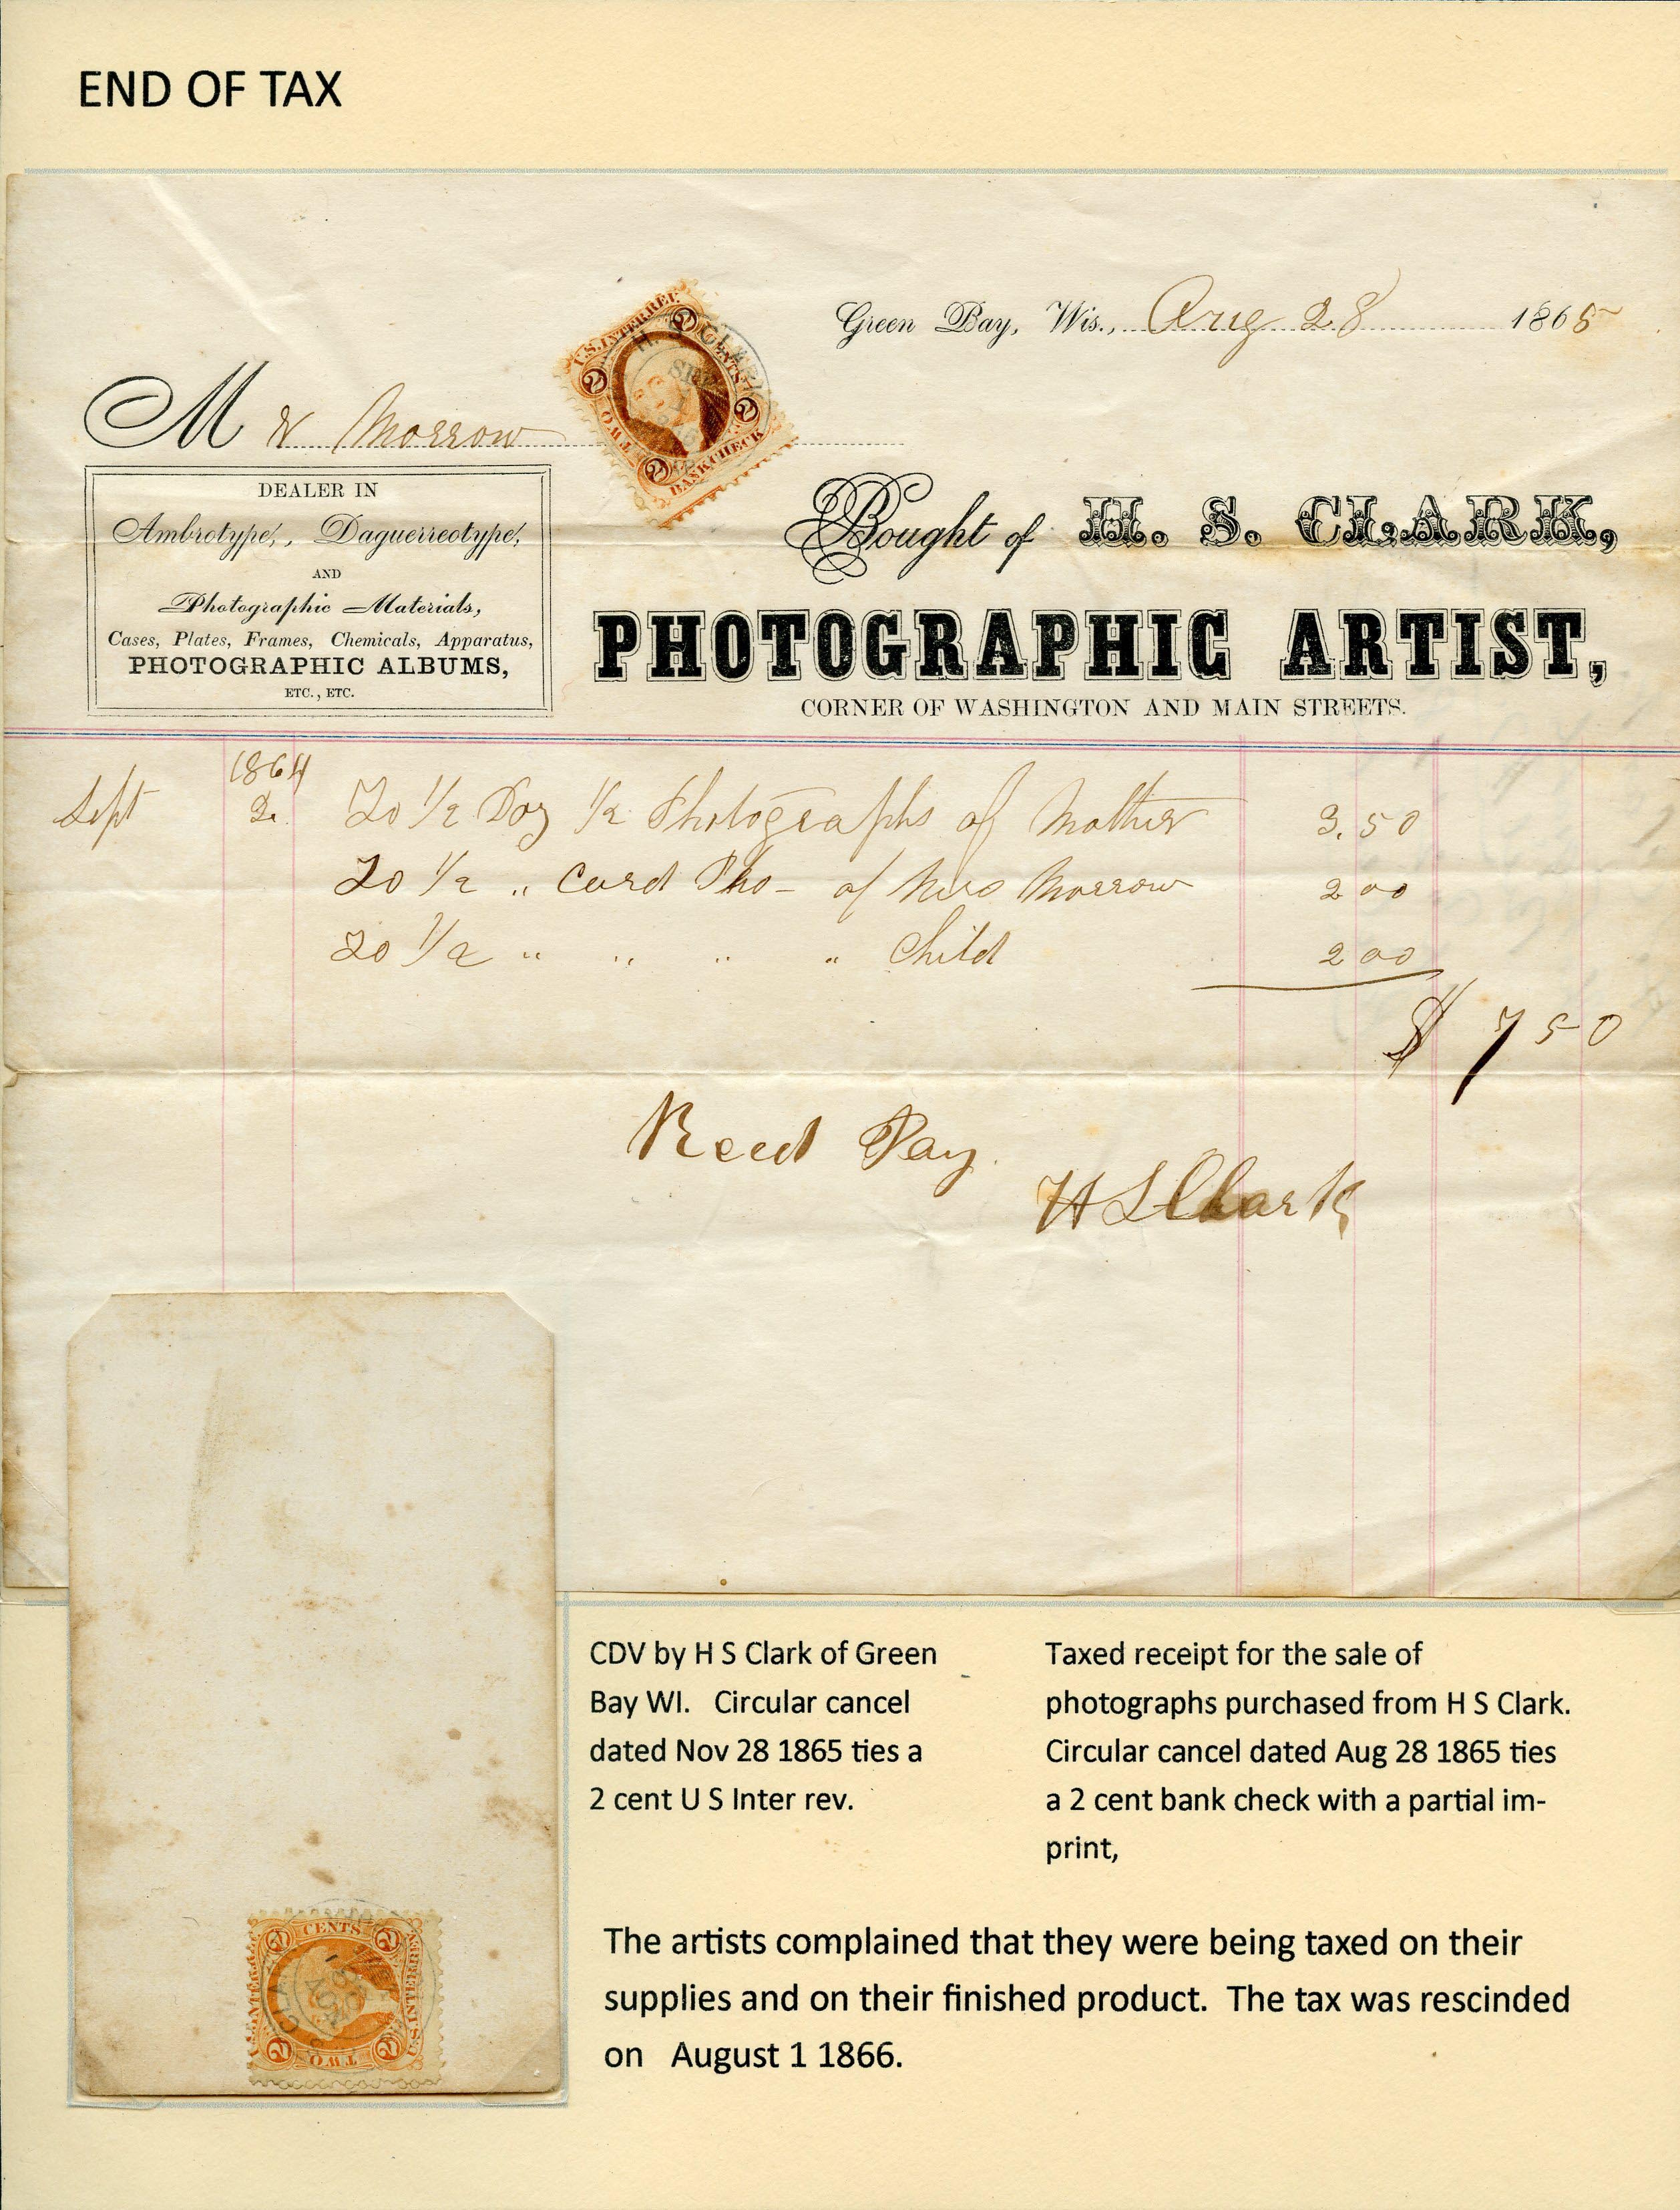 END OF TAX
Green Bay, Wis., Aug 28 1865
U.S. INTER. REV.
2 CENTS
TWO
BANK CHECK
H. S. CLARK
M r Morrow
DEALER IN
Ambrotype, Daguerreotype,
AND
Photographic Materials,
Cases, Plates, Frames, Chemicals, Apparatus,
PHOTOGRAPHIC ALBUMS,
ETC., ETC.
Bought of H. S. CLARK,
PHOTOGRAPHIC ARTIST,
CORNER OF WASHINGTON AND MAIN STREETS.
1864
Sept 2. To 1/2 Doz 1/2 Photographs of Mother 3.50
To 1/2 " Card Pho- of Mrs Morrow 2 00
To 1/2 " " " " Child 2 00
$ 7 50
Recd Pay
H S Clark
CDV by H S Clark of Green
Bay WI. Circular cancel
dated Nov 28 1865 ties a
2 cent U S Inter rev.
Taxed receipt for the sale of
photographs purchased from H S Clark.
Circular cancel dated Aug 28 1865 ties
a 2 cent bank check with a partial im-
print,
2 CENTS 2
U.S. INTER. REV.
2 TWO 2
The artists complained that they were being taxed on their
supplies and on their finished product. The tax was rescinded
on August 1 1866.